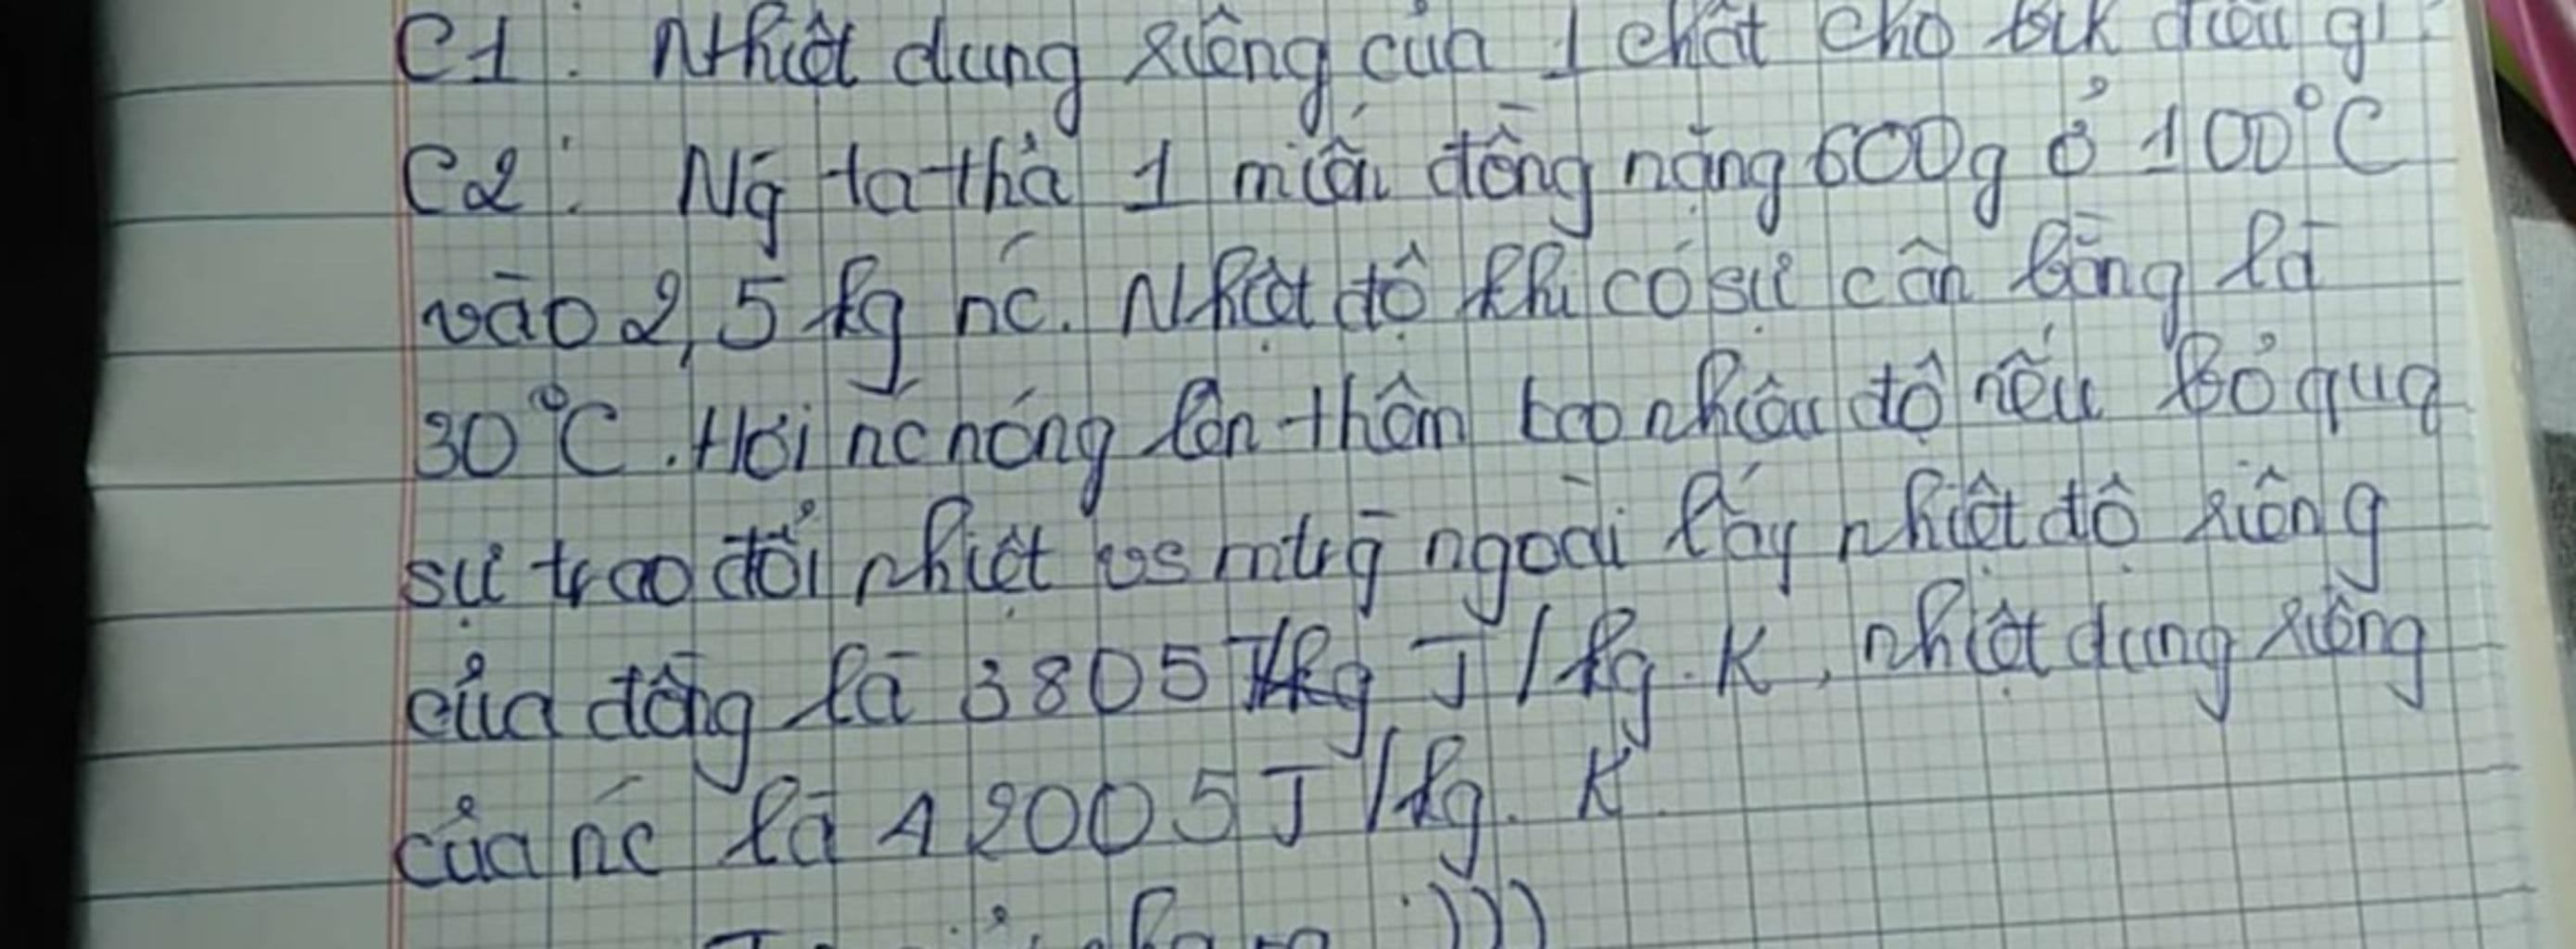 C1: Nhiệt dung riêng của 1 chất cho bik điều gì
C2: Ng̃ ta thả 1 miến đồng nặng 600g ở 100°C
vào 2,5 kg nc. Nhiệt độ khi có sự cân bằng là
30°C. Hỏi nc nóng lên thêm bao nhiêu độ nếu bỏ qua
sự trao đổi nhiệt vs mtrg̃ ngoài lấy nhiệt độ riêng
của đồng là 3805 J/kg.K, nhiệt dung riêng
của nc là 42005J/kg.K